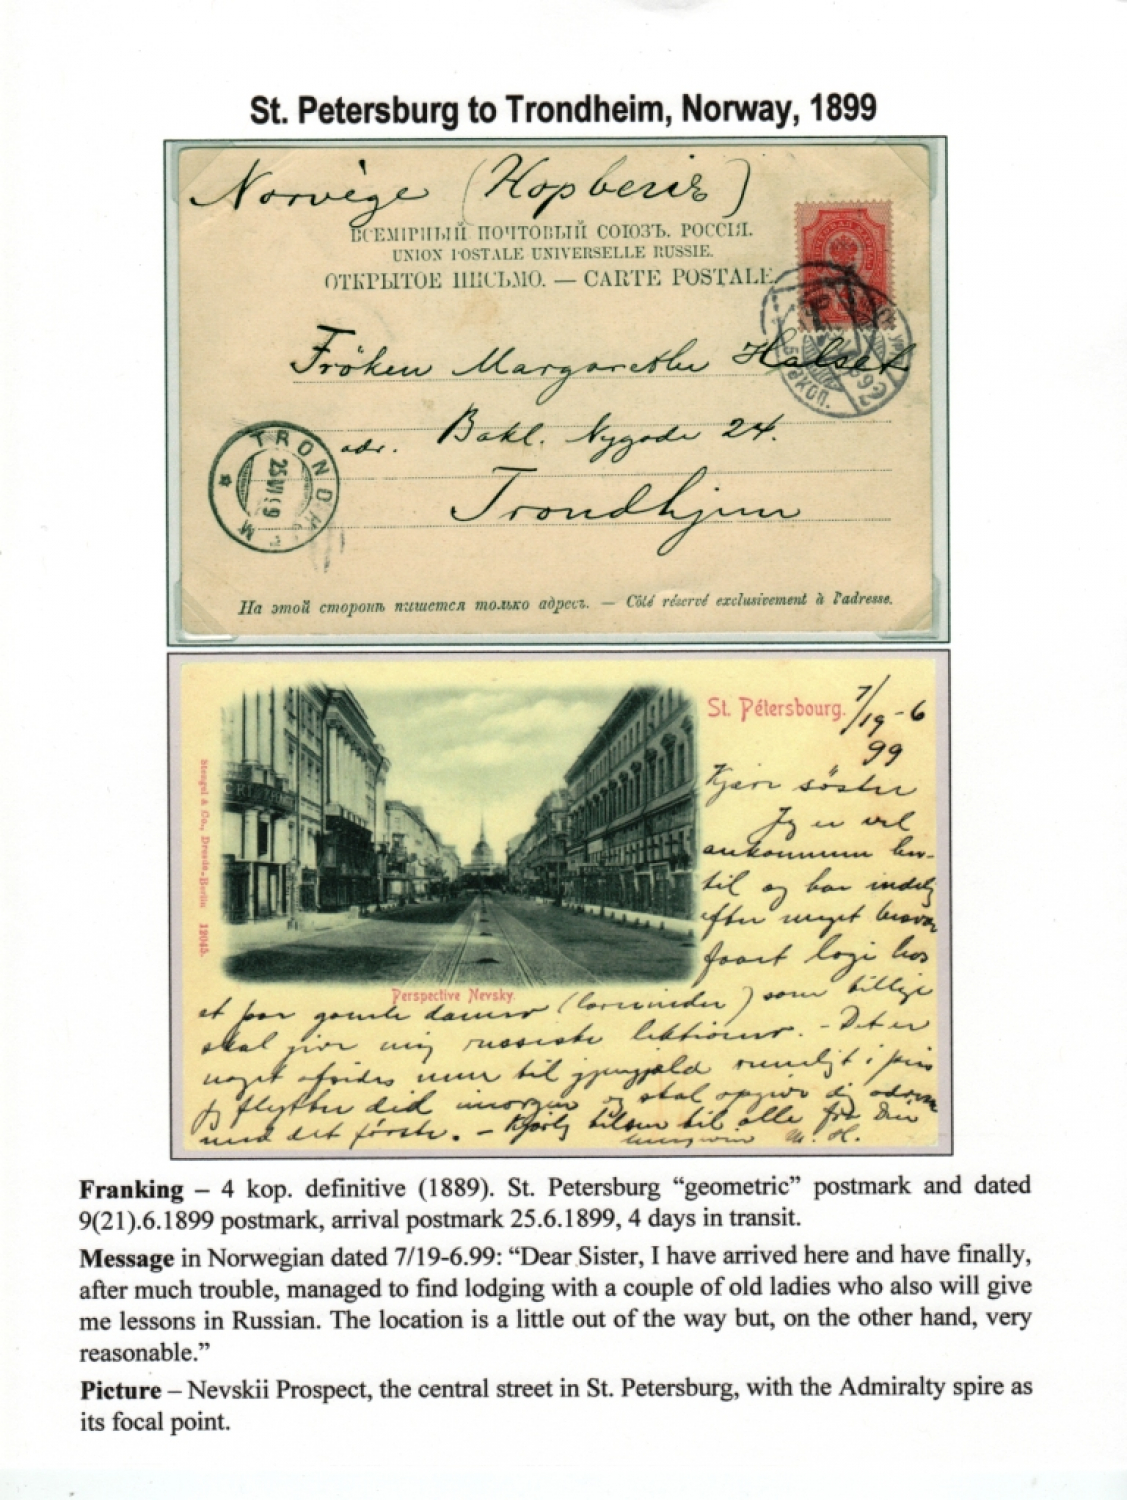 St. Petersburg to Trondheim, Norway, 1899
Norvège (Норвегiя)
ВСЕМIРНЫЙ ПОЧТОВЫЙ СОЮЗЪ. РОССIЯ.
UNION POSTALE UNIVERSELLE RUSSIE.
ОТКРЫТОЕ ПИСЬМО. — CARTE POSTALE.
Fröken Margarethe Halset
adr. Bakl. Nygade 24.
Trondhjem
TRONDHJEM
25 VI 99
На этой сторонѣ пишется только адресъ. — Côté réservé exclusivement à l'adresse.
St. Pétersbourg. 7/19-6
99
Kjære söster
Jeg er vel
ankommen her-
til og har indelig
efter meget besvær
faaet logi hos
Stengel & Co., Dresde-Berlin 12045.
Perspective Nevsky.
et par gamle damer (lærerinder) som tillige
skal give mig russiske lektioner. - Det er
noget afsides men til gjengjæld rimeligt i pris
Jeg flytter did imorgen og skal opgive dig adressen
med det første. - Hjertelig hilsen til alle fra Din
M. H.
Franking – 4 kop. definitive (1889). St. Petersburg “geometric” postmark and dated
9(21).6.1899 postmark, arrival postmark 25.6.1899, 4 days in transit.
Message in Norwegian dated 7/19-6.99: “Dear Sister, I have arrived here and have finally,
after much trouble, managed to find lodging with a couple of old ladies who also will give
me lessons in Russian. The location is a little out of the way but, on the other hand, very
reasonable.”
Picture – Nevskii Prospect, the central street in St. Petersburg, with the Admiralty spire as
its focal point.